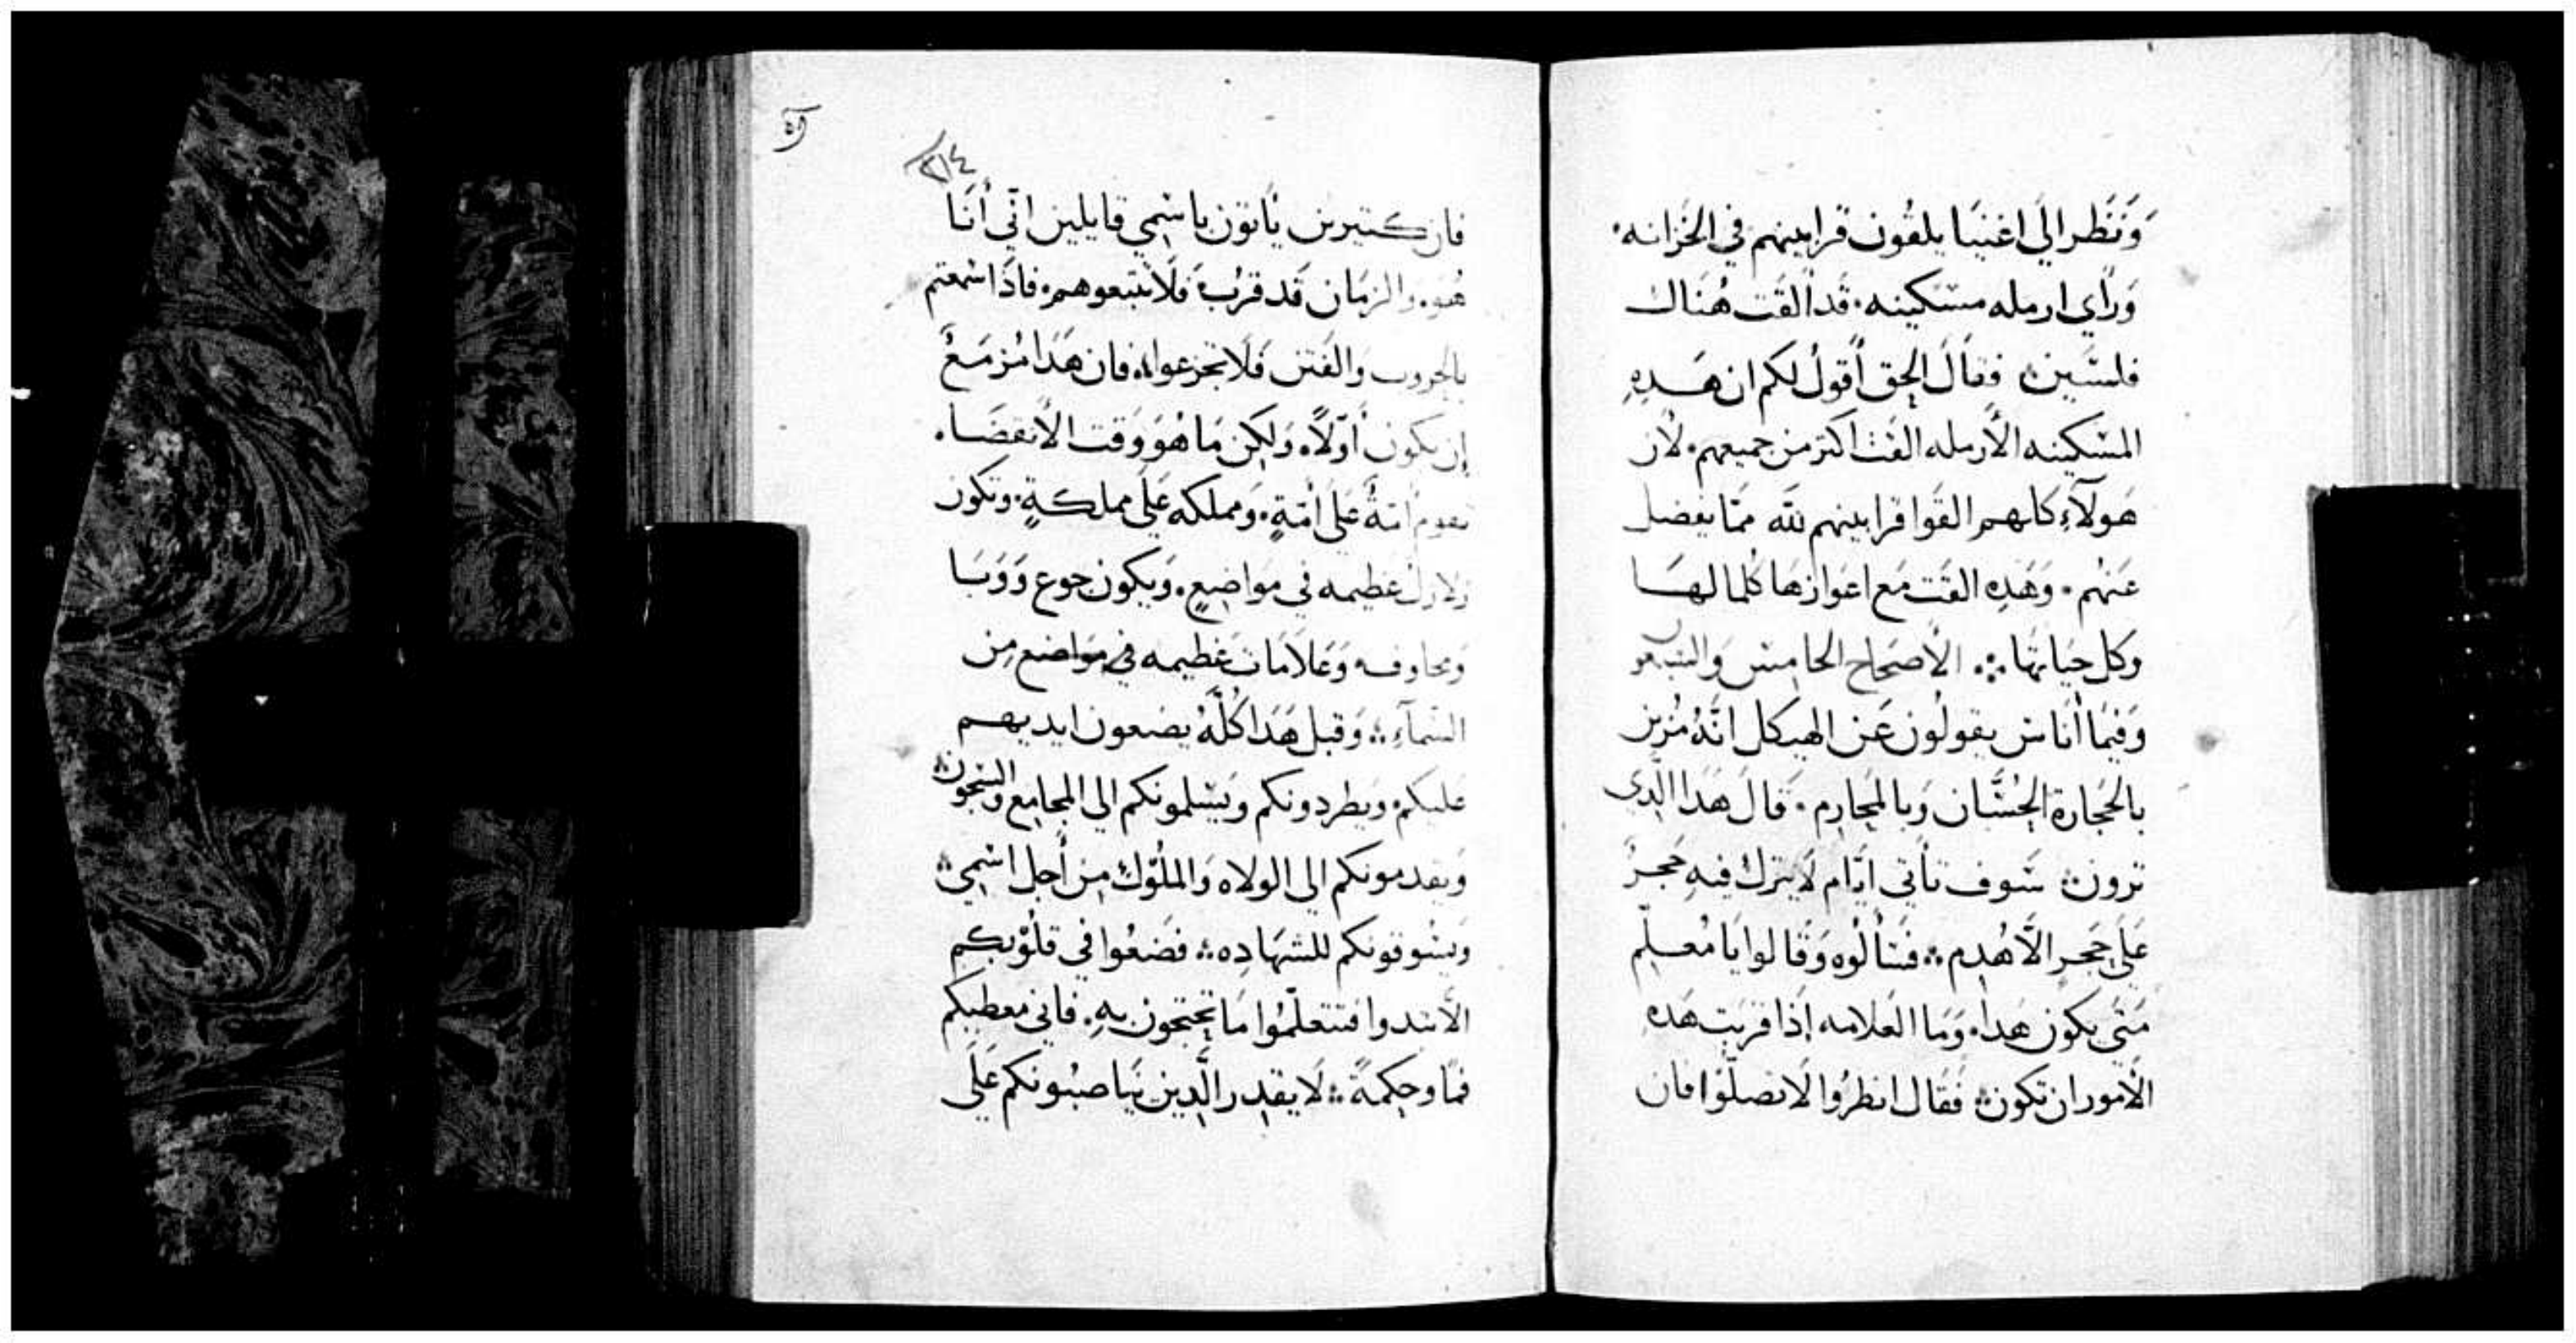 وَنَظر الَي اغنيَا يلقُون قرابينهم في الخزانه.
وَرَأي ارمله مسكينه. قَد القَت هُنَاك
فلسَين فقالَ الحِق أقولُ لكم ان هَدِهِ
المسكينه الأرمله القَت اكتر من جميعهم. لأن
هَولآءِ كلهم القَوا قرابينهم للَه ممّا يفضل
عَنهُم. وَهَدِه القَت مَع اعوَازهَا كلما لهَا
وكل حيَاتهَا الأصحَاح الخامِس وَالسَبعو
وَفيمَا أنَاس يقولُون عَن الهيكل انَّهُ مُزين
بالحَجَارة الحِسَان وَبالمَحارِم. قالَ هَدَا الَّدِي
ترون سَوف تأتي ايَّام لَا يترك فيهِ حَجرٌ
عَلي حَجرٍ الَّا هُدِم فسَألُوه وَقَالوا يَا مُعلّم
مَتي يكون هَدا. وَمَا العَلامه إذا قربَت هَدهِ
الأمور ان تكون فقَال انظرُوا لَا تضلّوا فان
وه
٢١٤
فان كتيرين يَأتون باسمِي قايلين انِّي أنَا
هُو. وَالزمَان قَد قرُب فَلَا تتبعوهم. فادَا سمعتم
بالحروب وَالفتن فَلَا تجزعوا فان هَدَا مُزمَعٌ
إن يكون أوّلاً. وَلكِن مَا هُوَ وَقت الأنقضَا.
تقوم امّةٌ عَلي أمّةٍ. وَمملكه عَلي مملكةٍ. وتكون
زلازل عَظيمه في موَاضِعٍ. وَيكون جوع وَوَبَا
وَمخاوف وَعَلاَمَات عَظيمه في موَاضع مِن
السّمآءِ وَقبل هَدَا كُلّهُ يضعون ايديهم
عَليكم. وَيطردونكم وَيسَلمونكم الي المجامِع وَالسجون
وَيقدمونكم الي الولاه وَالملُوك مِن أجل اسْمِي
وَيسُوقونكم للشهَادِه فضَعُوا في قلُوبكم
الّا تبتدوا فتتعلّمُوا مَا تحتجون بهِ. فاني معطيكم
فمًا وحِكمةً لَا يقدِر الَّدِين يُنَاصبُونكم عَلَي